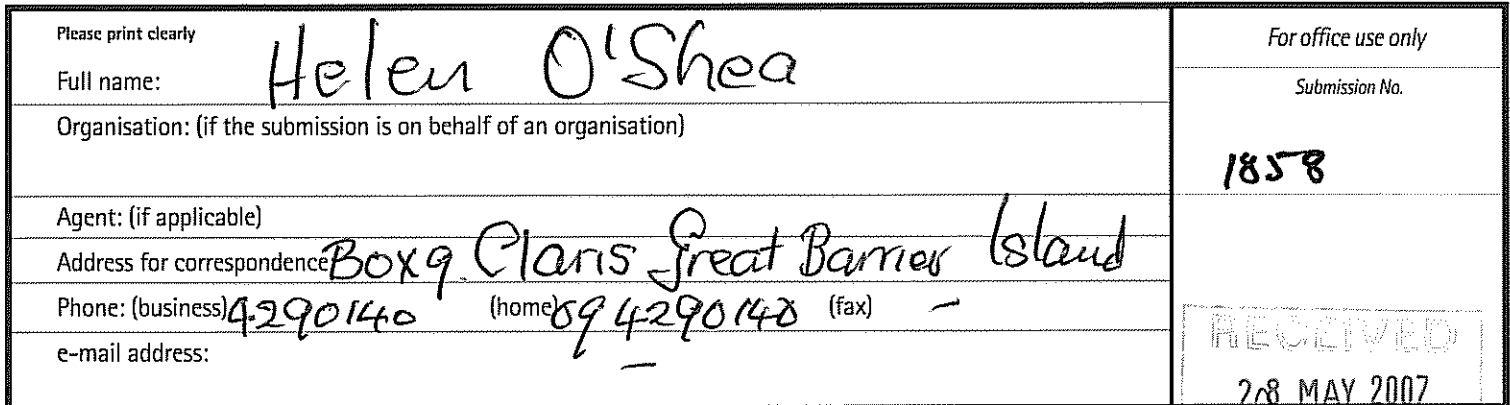 Please print clearly
Full name: Helen O'Shea
Organisation: (if the submission is on behalf of an organisation)
Agent: (if applicable)
Address for correspondence Box 9 Claris Great Barrier Island
Phone: (business) 4290140 (home) 09 4290140 (fax) –
e-mail address: –
For office use only
Submission No.
1858
RECEIVED
28 MAY 2007